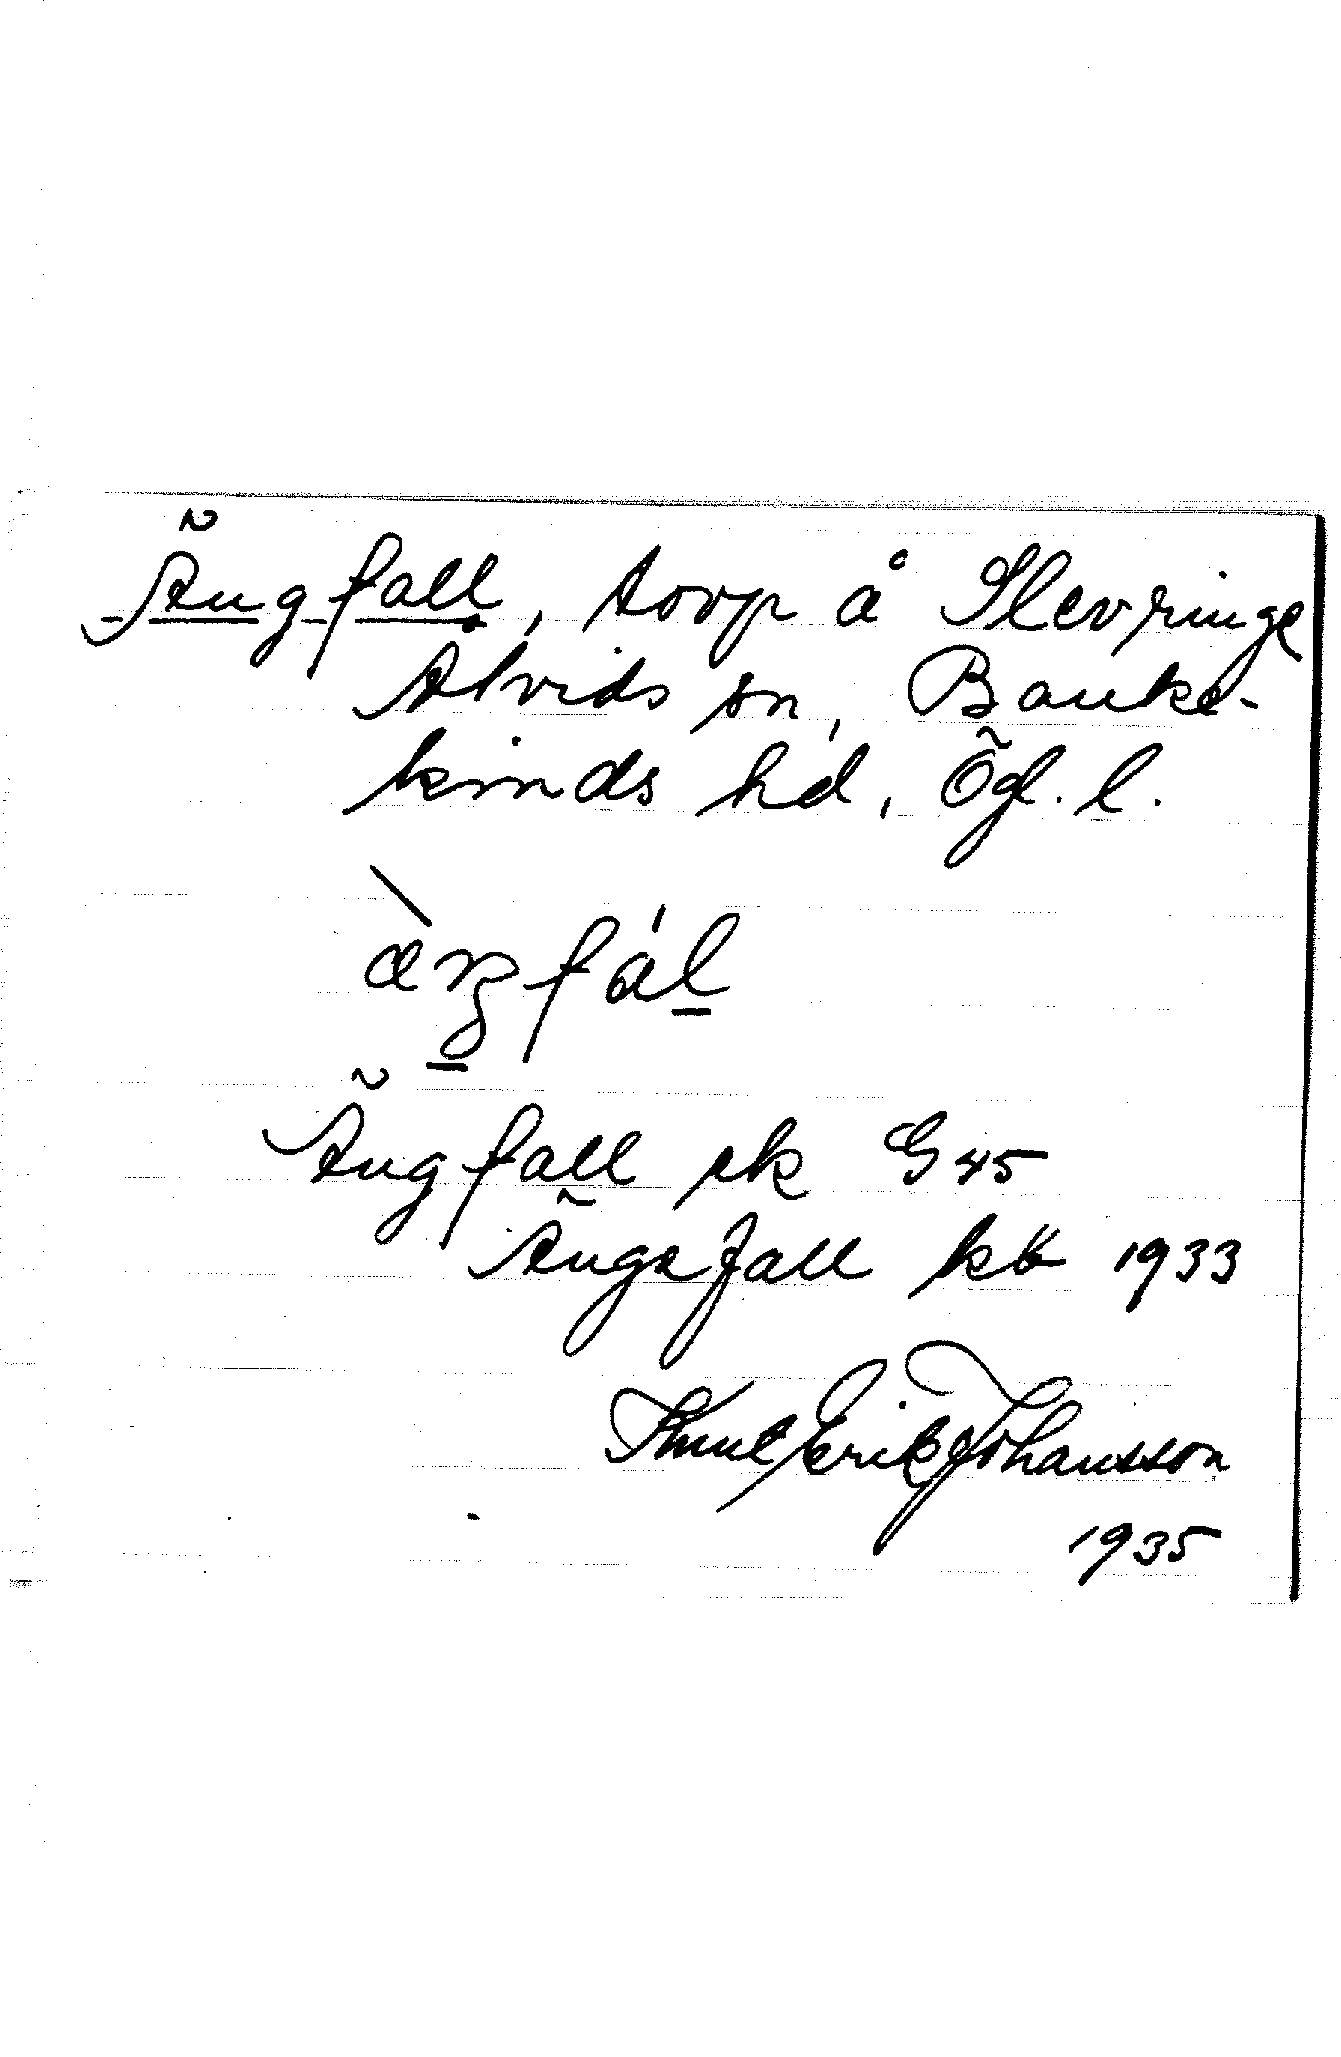 Ängfall, torp å Slevringe
Åtvids sn, Banke-
kinds hd, Ögl. l.
Ängfall ek G 45
Ängsfall kb 1933
Knut Erik Johansson
1935